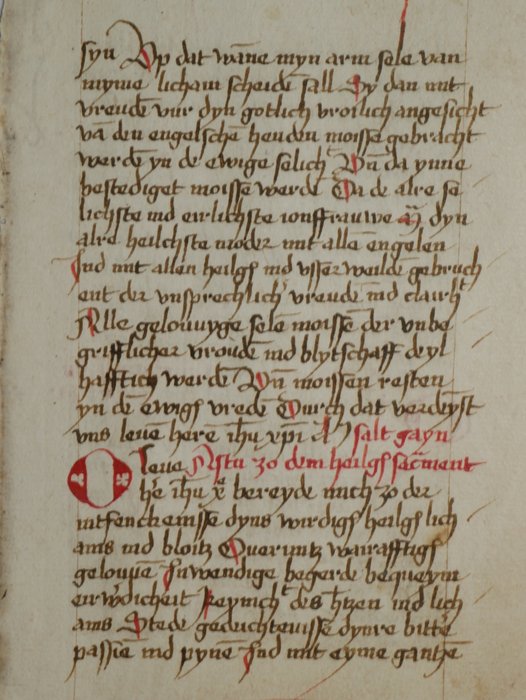 syn Vp dat wāne myn arm sele van
myme licham scheidē sall Sy dan mit
vreudē vur dyn gotlich vroilich angesicht
vā den engelschē henden moisse gebracht
werdē yn de ewige selich^t Vñ da ynne
bestediget moisse werdē Da de alre se
lichste ind eirlichste ionffrauwe M dyn
alre heilchste moder mit allē engelen
Ind mit allen heilgē ind vsserweildē gebruch
ent der vnsprechlich^s vreude ind clairh^t
Alle gelouuyge selen moissē der vnbe
grifflicher vroudē ind blytschaff deyl
hafftich werdē Vñ moissen resten
yn dē ewigē vredē Durch dat verdeynst
vns leuē herē ihu xpi A) salt gayn
O leue Astu zo dem heilgē sacment
he ihu xe bereyde mich zo der
intfenckenisse dyns wirdigē heilgē lich
ams ind bloitz Ouermitz warafftigē
gelouuē Inwendige begerde bequeym
eirwdicheit Reynich^t des htzen ind lich
ams Stede gedechtenisse dynre bitte
passien ind pynē Ind mit eyme gantzē